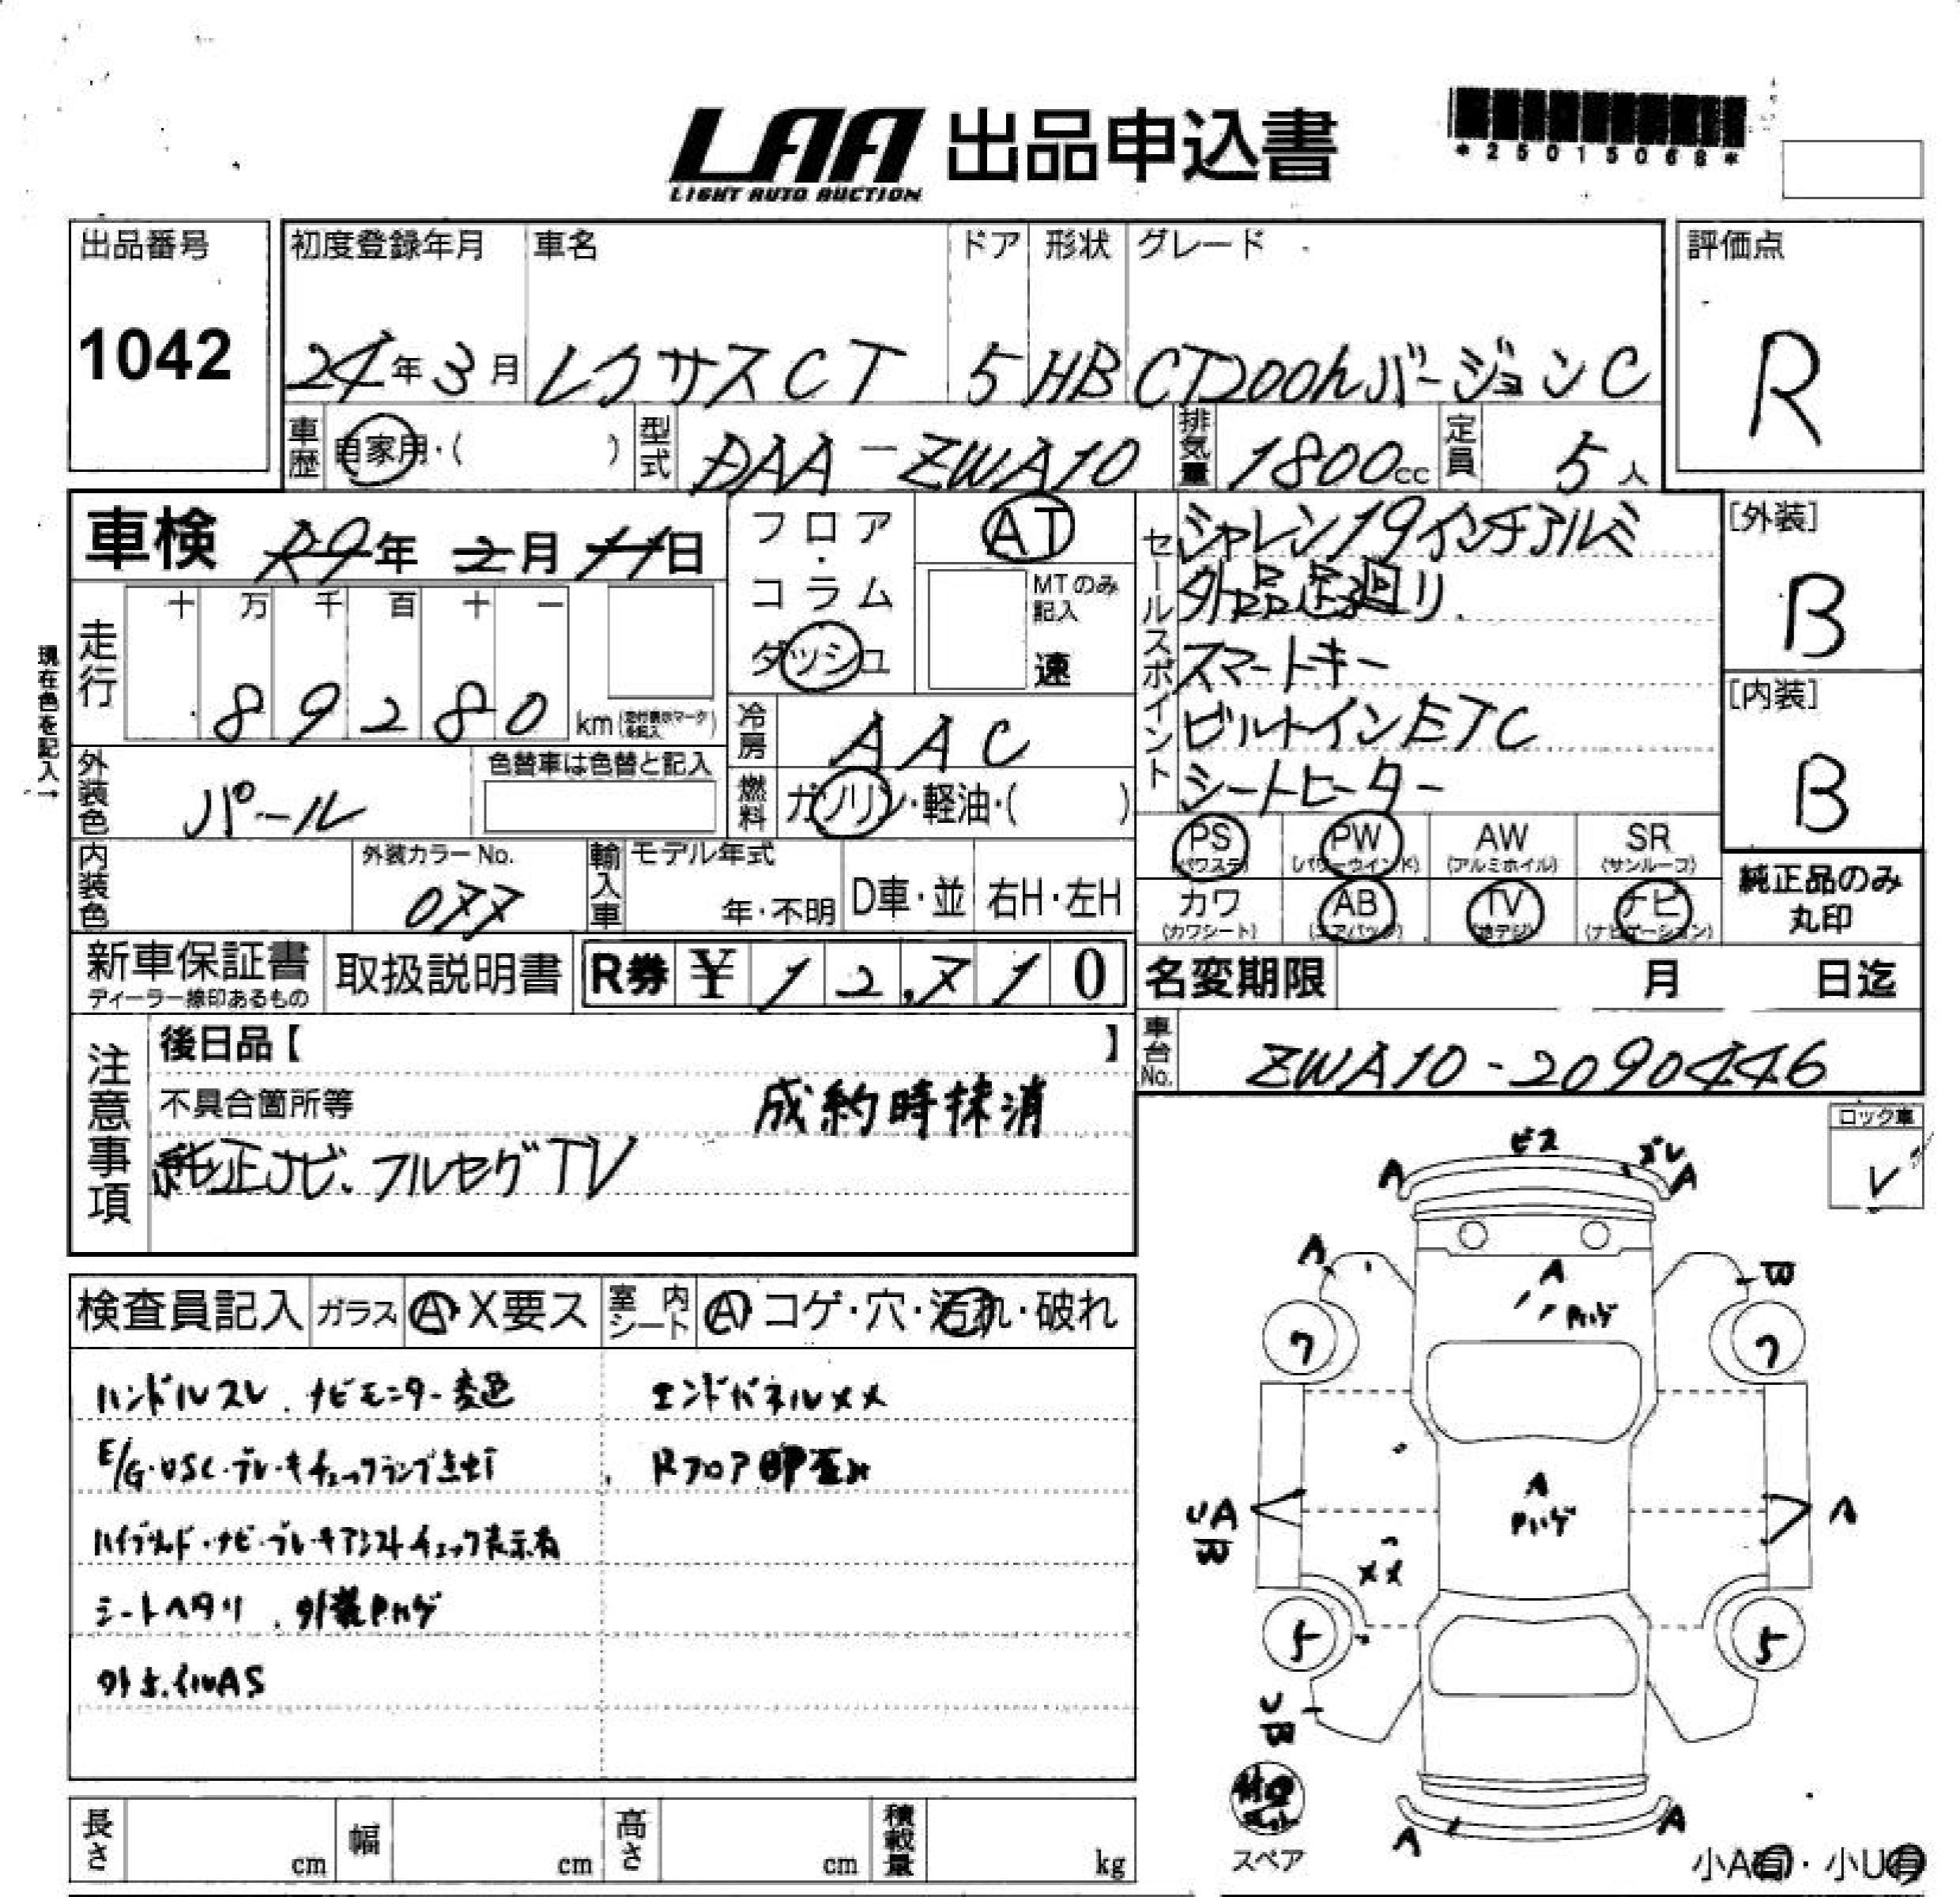 LAA 出品申込書
LIGHT AUTO AUCTION
*25015068*
出品番号
1042
初度登録年月 車名 ドア 形状 グレード
24年3月 レクサスCT 5 HB CT200hバージョンC
評価点
R
車歴 自家用・( ) 型式 DAA-ZWA10 排気量 1800cc 定員 5人
車検 R9年 2月 11日
フロア・コラム ダッシュ
AT
MTのみ記入
速
セールスポイント
シャレン19インチアルミ
外品足廻り
スマートキー
ビルトインETC
シートヒーター
[外装]
B
[内装]
B
現在色を記入→
走行 十 万 千 百 十 一
89280 km
冷房 AAC
外装色 パール 色替車は色替と記入
燃料 ガソリン・軽油・( )
PS (パワステ) PW (パワーウインド) AW (アルミホイル) SR (サンルーフ)
カワ (カワシート) AB (エアバック) TV (地デジ) ナビ (ナビゲーション)
純正品のみ丸印
内装色 外装カラーNo. 077 輸入車 モデル年式 年・不明 D車・並 右H・左H
新車保証書 ディーラー線印あるもの 取扱説明書 R券 ¥12,710
名変期限 月 日迄
車台No. ZWA10-2090446
注意事項
後日品【 】
不具合箇所等 成約時抹消
純正ナビ、フルセグTV
ロック車
レ
検査員記入 ガラス A・X要ス 室内シート A コゲ・穴・汚れ・破れ
ハンドルスレ、ナビモニター変色
エンドパネルXX
E/G・VSC・ブレーキチェックランプ点灯
Rフロア
ハイブリッド・ナビ・ブレーキアシストチェック表示有
シートヘタリ、外装Pハゲ
外ホイルAS
ビス ズレ
A A
A A B
Pハゲ
7 7
A
Pハゲ
UA
B
A
XX
5 5
U
B
スペア
A A
小A有・小U有
長さ cm 幅 cm 高さ cm 積載量 kg